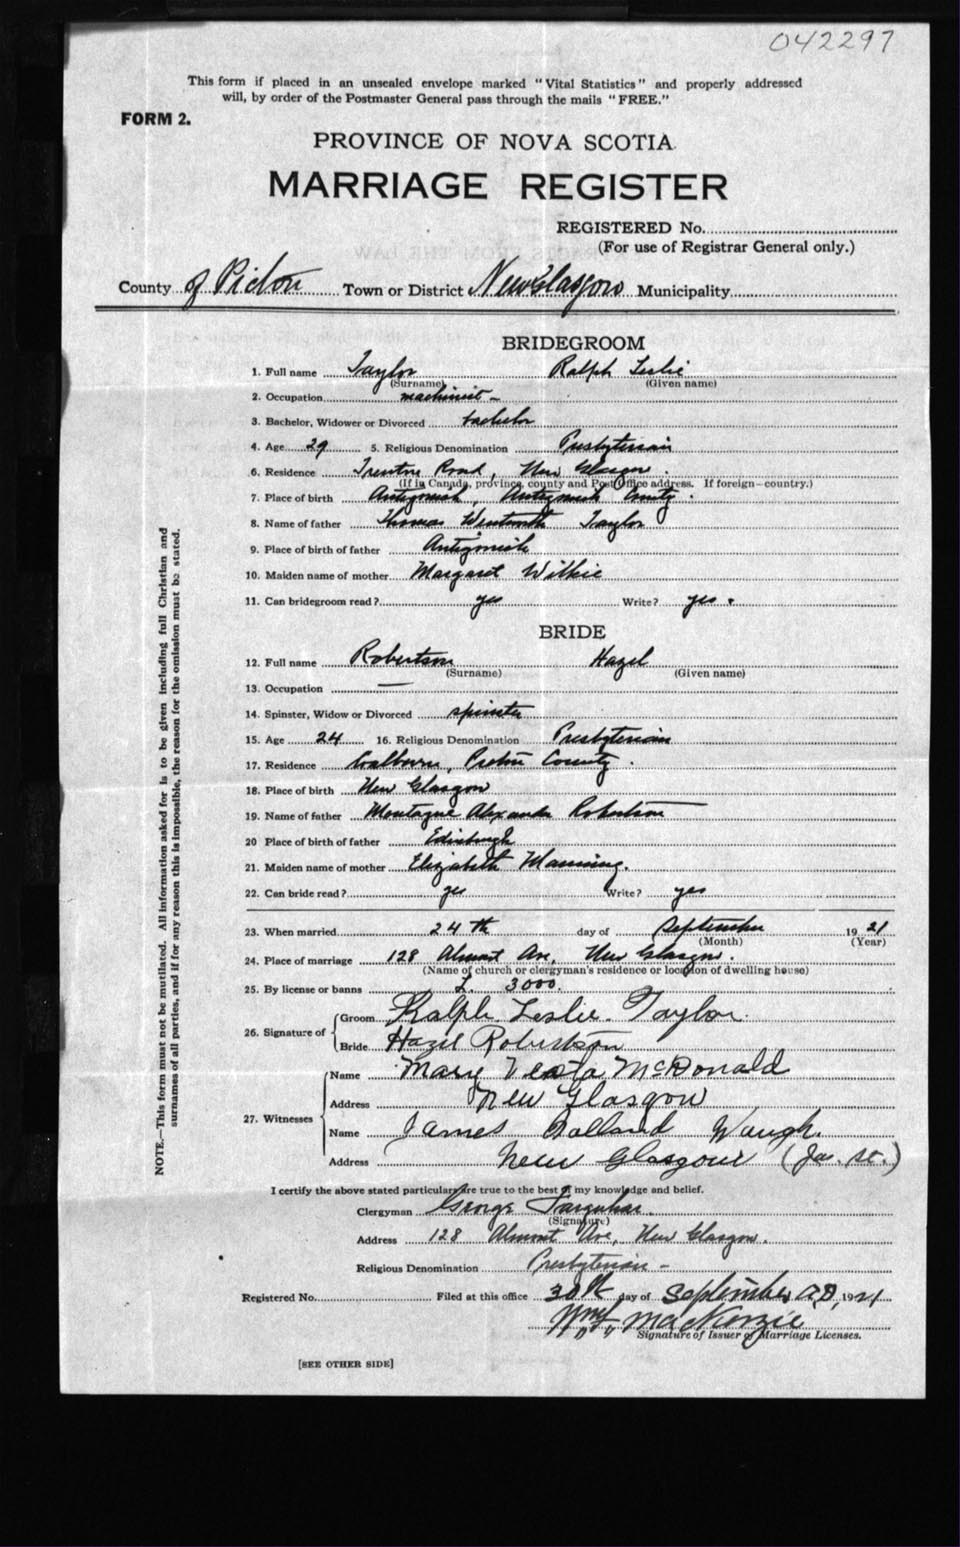 042297
This form if placed in an unsealed envelope marked "Vital Statistics" and properly addressed
will, by order of the Postmaster General pass through the mails "FREE."
FORM 2.
PROVINCE OF NOVA SCOTIA
MARRIAGE REGISTER
REGISTERED No.
(For use of Registrar General only.)
County of Pictou Town or District New Glasgow Municipality
BRIDEGROOM
1. Full name Taylor Ralph Leslie
(Surname) (Given name)
2. Occupation machinist -
3. Bachelor, Widower or Divorced bachelor
4. Age 29 5. Religious Denomination Presbyterian
6. Residence Trenton Road, New Glasgow.
(If in Canada, province, county and Post Office address. If foreign—country.)
7. Place of birth Antigonish, Antigonish County.
8. Name of father Thomas Wentworth Taylor
9. Place of birth of father Antigonish
10. Maiden name of mother Margaret Wilkie
11. Can bridegroom read? yes Write? yes.
BRIDE
12. Full name Robertson Hazel
(Surname) (Given name)
13. Occupation —
14. Spinster, Widow or Divorced spinster
15. Age 24 16. Religious Denomination Presbyterian
17. Residence Pictou County.
18. Place of birth New Glasgow
19. Name of father Montague Alexander Robertson
20 Place of birth of father Edinburgh
21. Maiden name of mother Elizabeth Manning.
22. Can bride read? yes Write? yes
23. When married 24th day of September 1921
(Month) (Year)
24. Place of marriage 128 Almont Ave, New Glasgow.
(Name of church or clergyman's residence or location of dwelling house)
25. By license or banns L 3000.
26. Signature of Groom Ralph Leslie Taylor.
Bride Hazel Robertson
27. Witnesses Name Mary McDonald
Address New Glasgow
Name James Waugh.
Address New Glasgow (Jas. St.)
I certify the above stated particulars are true to the best of my knowledge and belief.
Clergyman George Farquhar.
(Signature)
Address 128 Almont Ave, New Glasgow.
Religious Denomination Presbyterian -
Registered No. Filed at this office 30th day of September A.D, 1921
MacKenzie
Signature of Issuer of Marriage Licenses.
[SEE OTHER SIDE]
NOTE.—This form must not be mutilated. All information asked for is to be given including full Christian and
surnames of all parties, and if for any reason this is impossible, the reason for the omission must be stated.